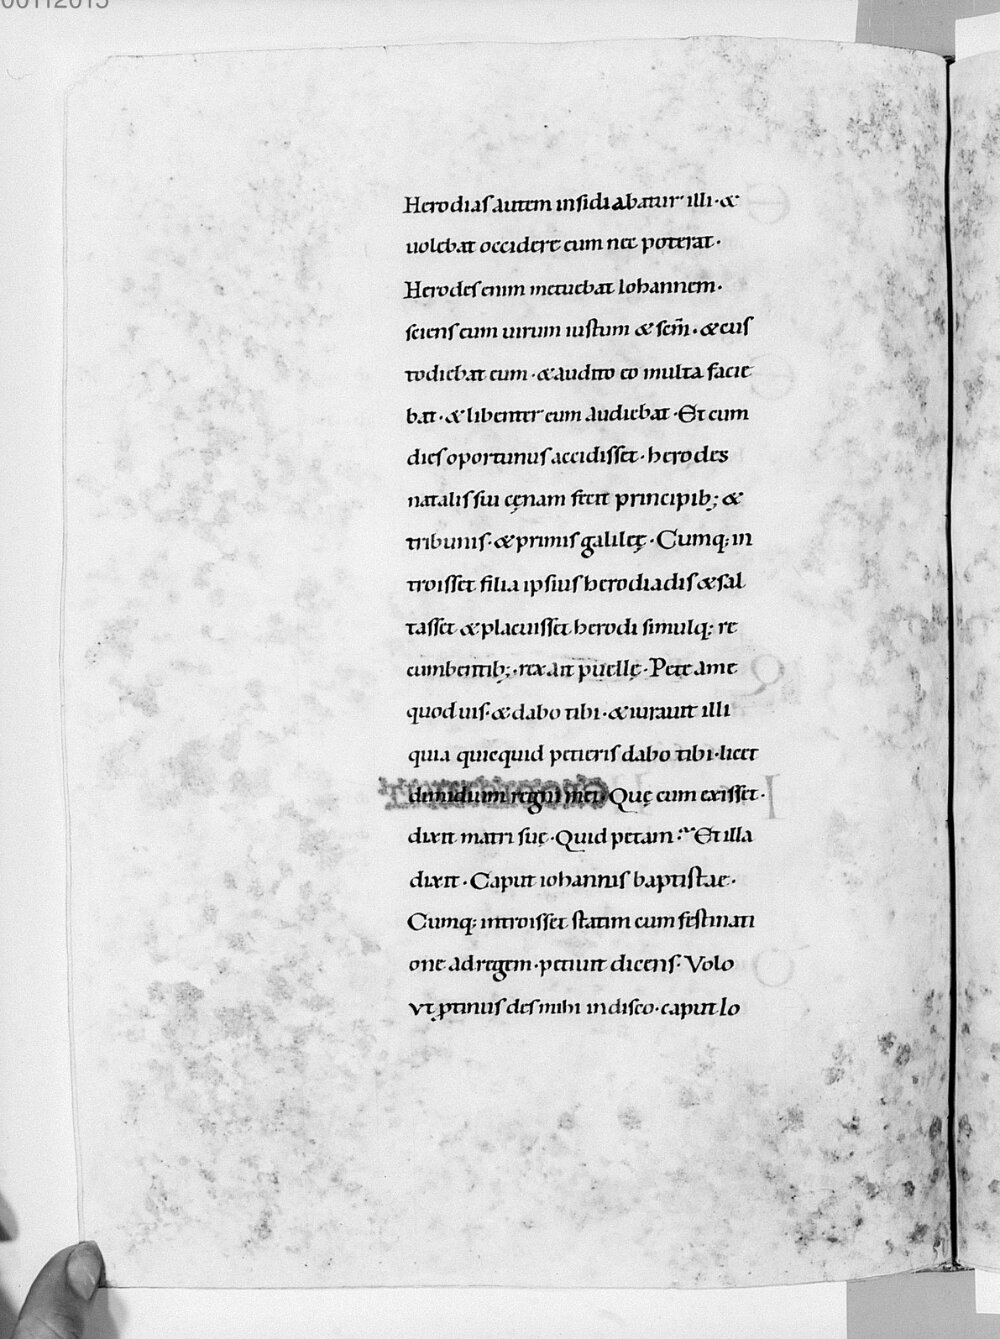 00112015
Herodias autem insidiabatur illi · &
uolebat occidere eum nec poterat ·
Herodes enim metuebat Iohannem ·
sciens eum uirum iustum & scm̄ · & cus
todiebat eum · & audito eo multa facie
bat · & libenter eum audiebat · Et cum
dies oportunus accidisset · herodes
natalis sui cęnam fecit principib; &
tribunis · & primis galileę · Cumq; in
troisset filia ipsius herodiadis & sal
tasset & placuisset herodi simulq; re
cumbentib; · rex ait puellę · Pete a me
quod uis · & dabo tibi · & iurauit illi
quia quicquid petieris dabo tibi · licet
dimidium regni mei · Quę cum exisset ·
dixit matri suę · Quid petam ? Et illa
dixit · Caput iohannis baptistae ·
Cumq; introisset statim cum festinati
one ad regem · petiuit dicens · Volo
vt ꝓtinus des mihi in disco · caput Io